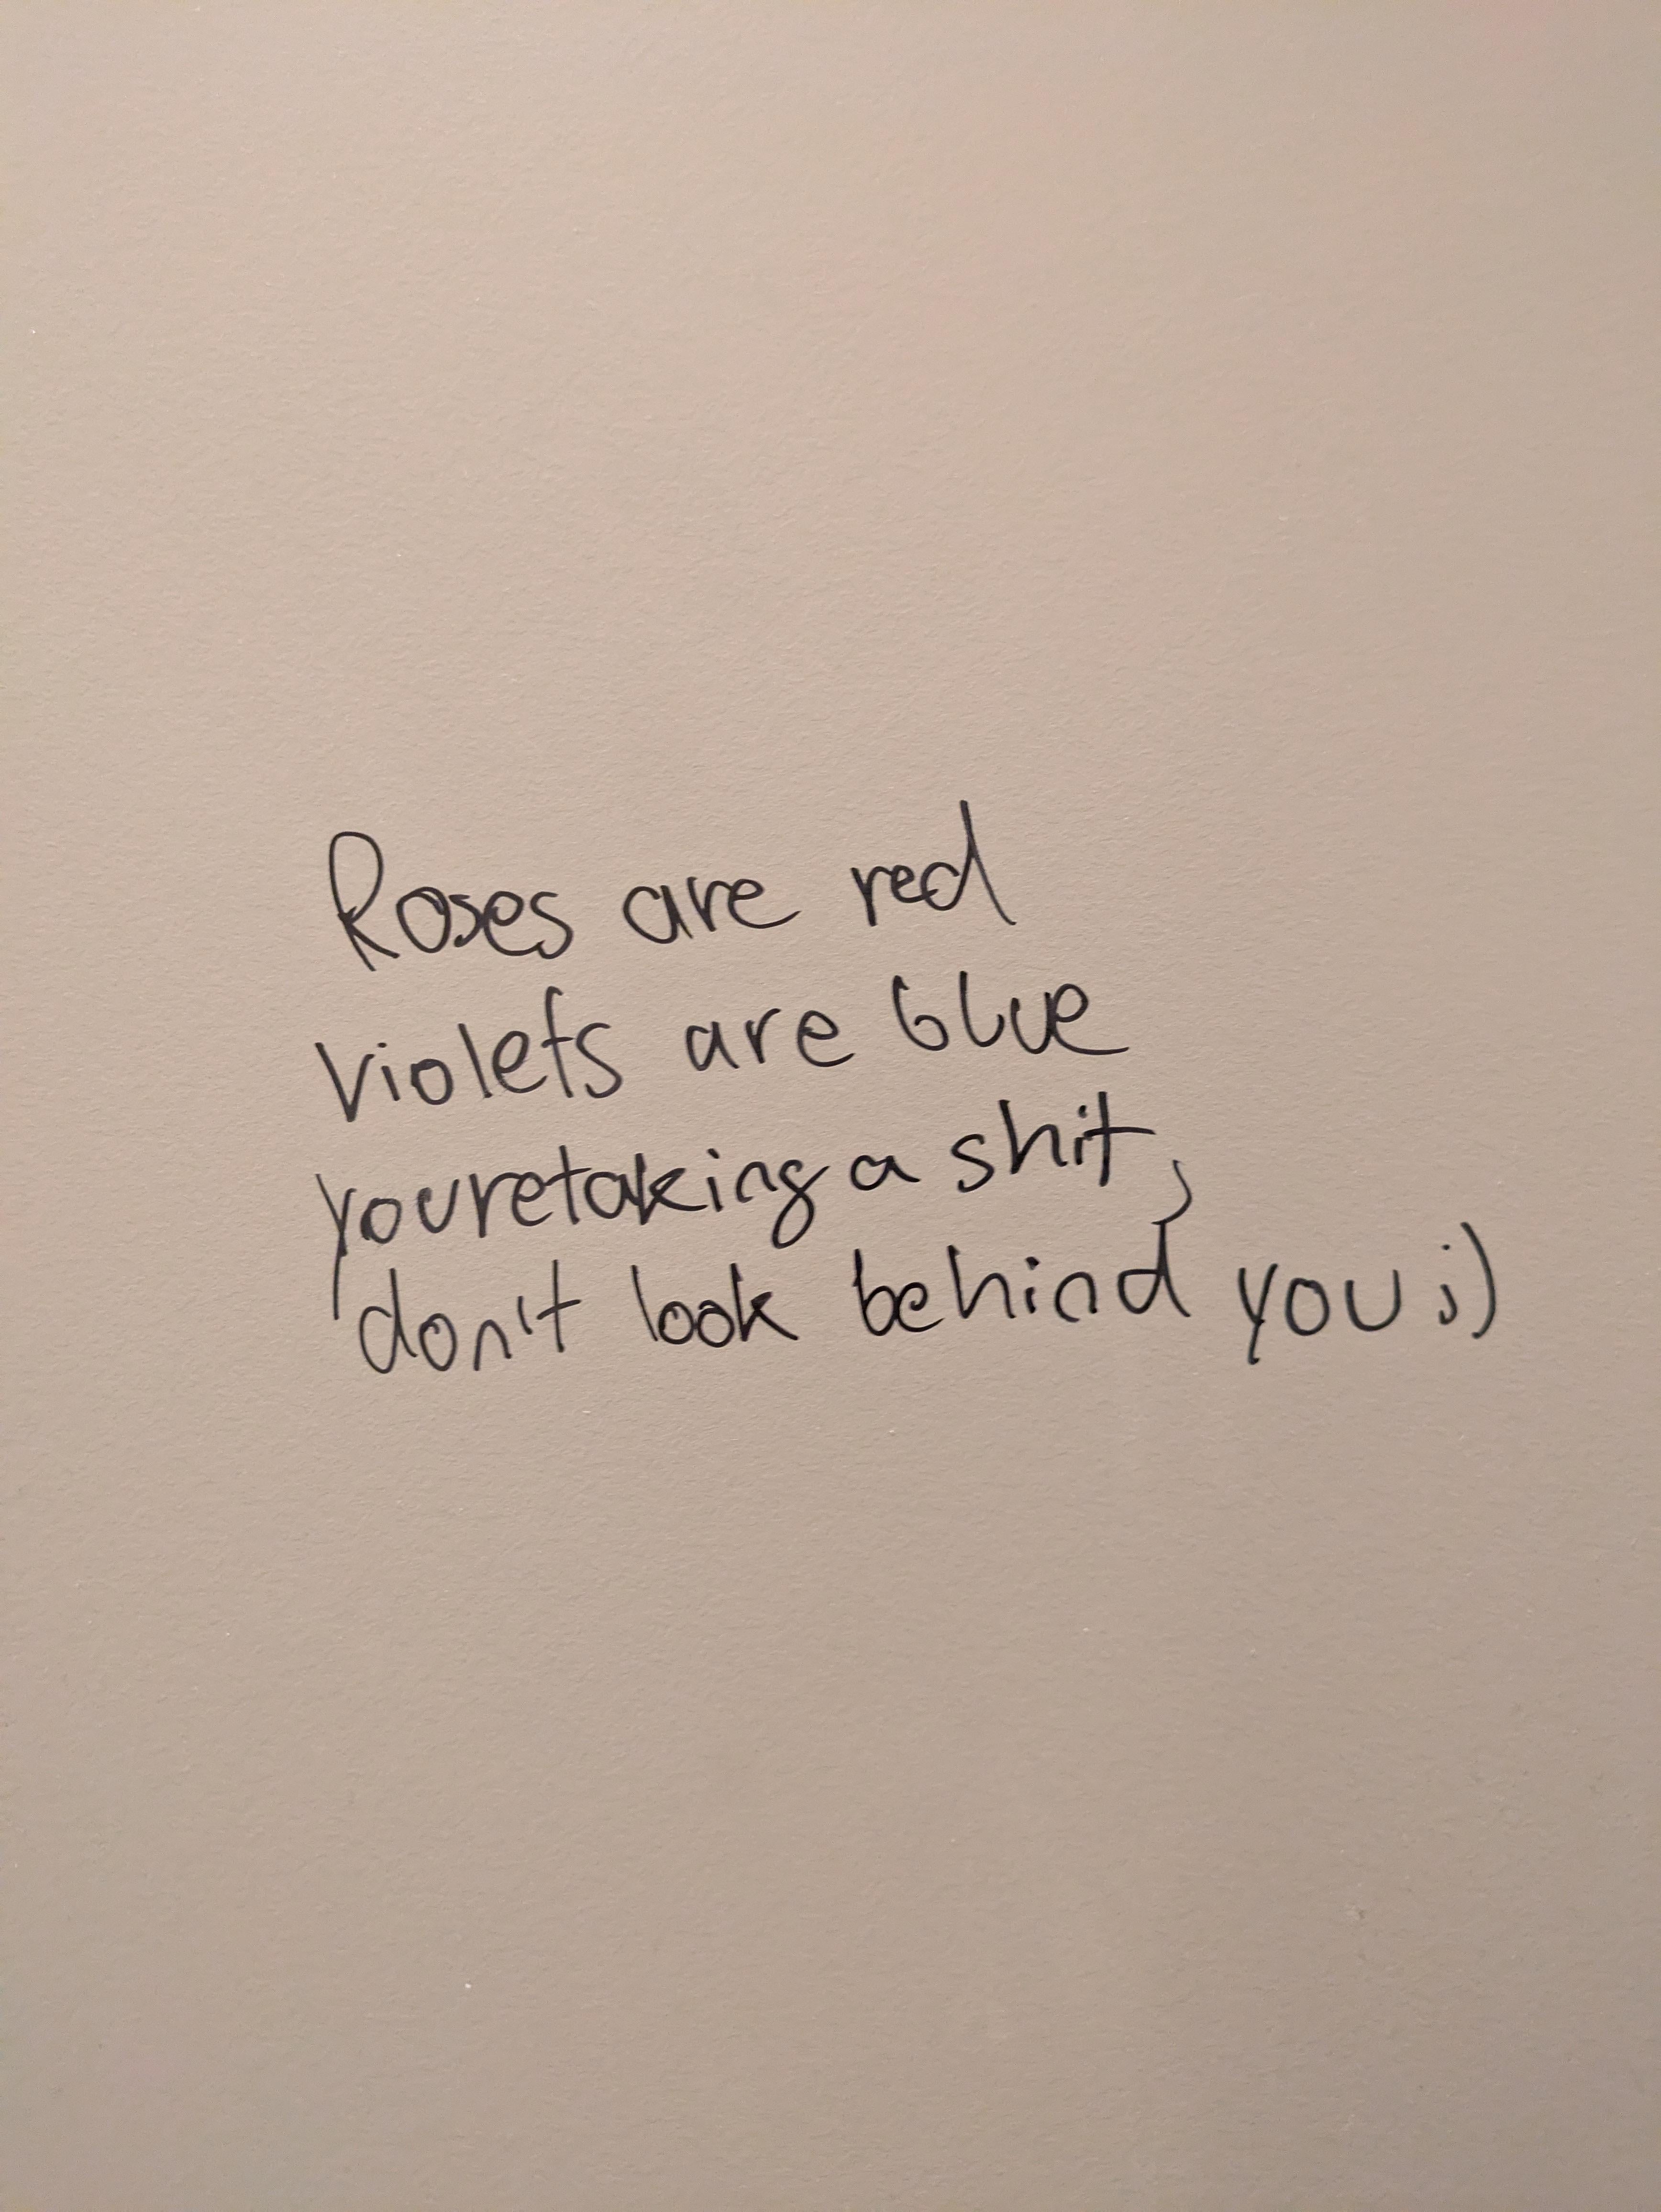 Roses are red
violets are blue
youretaking a shit,
don't look behind you ;)